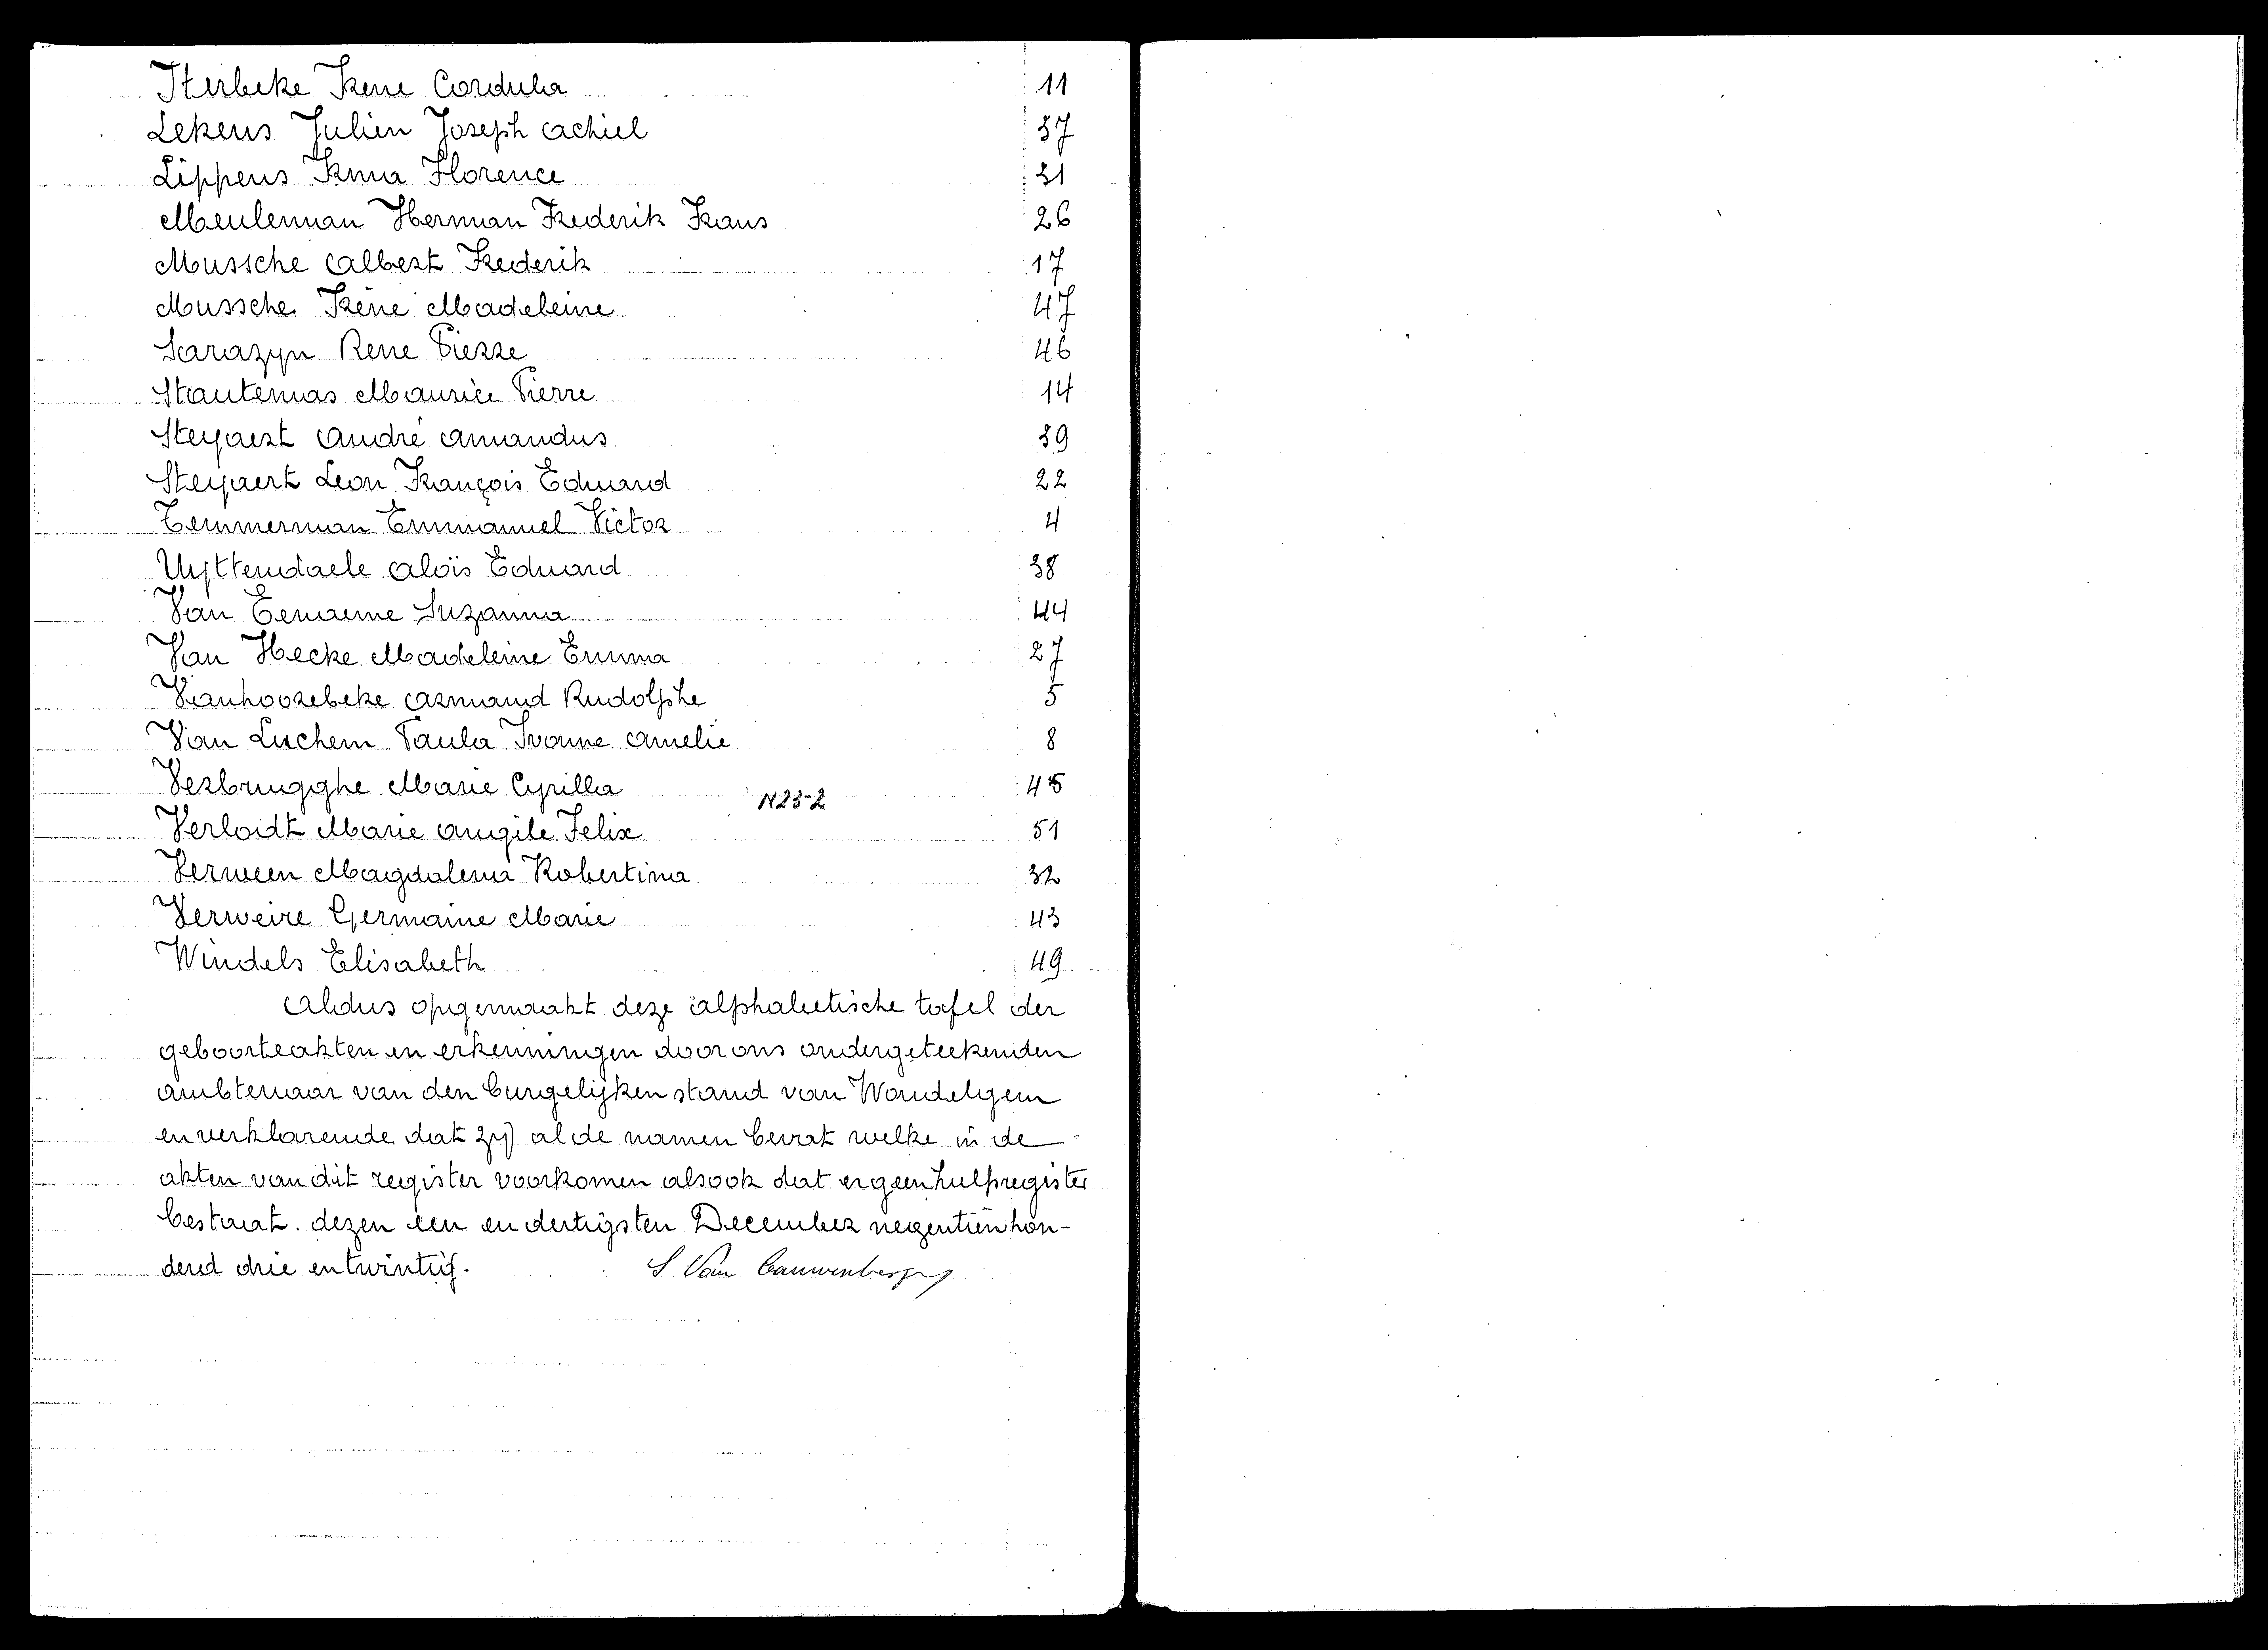 Iterbeke Irene Cordula 11
Lekens Julien Joseph Achiel 37
Lippens Irma Florence 31
Meuleman Herman Frederik Frans 26
Mussche Albert Frederik 17
Mussche Irène Madeleine 47
Sarazyn Rene Pierre 46
Stautemas Maurice Pierre 14
Steyaert André Amandus 39
Steyaert Leon François Eduard 22
Temmerman Emmanuel Victor 4
Uyttendaele Aloïs Eduard 38
Van Eenaeme Suzanna 44
Van Hecke Madeleine Emma 27
Vanhoorebeke Armand Rudolphe 5
Van Luchem Paula Ivonne Amelie 8
Verbrugghe Marie Cyrilla 45
N23-2
Verloidt Marie Angile Felix 51
Verween Magdalena Robertina 32
Verweire Germaine Marie 43
Windels Elisabeth 49
Aldus opgemaakt deze alphabetische tafel der
geboorteakten en erkenningen door ons ondergeteekenden
ambtenaar van den burgelijken stand van Wondelgem
en verklarende dat zij al de namen bevat welke in de
akten van dit register voorkomen alsook dat er geen hulpregister
bestaat. dezen een en dertigsten December negentien hon-
derd drie en twintig. S Van Cauwenberghe